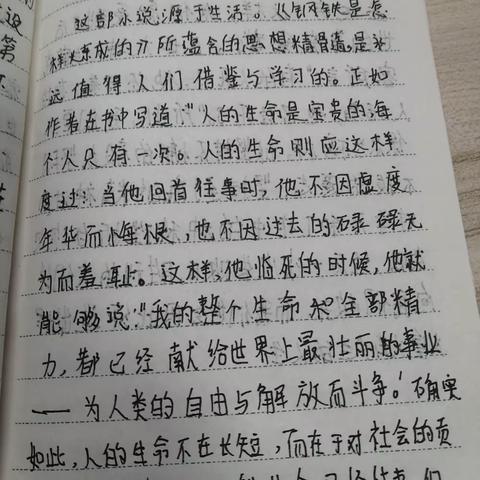 这部小说源于生活。《钢铁是怎
样炼成的》所蕴含的思想精髓是永
远值得人们借鉴与学习的。正如
作者在书中写道:"人的生命是宝贵的,每
个人只有一次。人的生命则应这样
度过:当他回首往事时,他不因虚度
年华而悔恨,也不因过去的碌碌无
为而羞耻。这样,他临死的时候,他就
能够说:"我的整个生命和全部精
力,都已经献给世界上最壮丽的事业
——为人类的自由与解放而斗争。'确实
如此,人的生命不在长短,而在于对社会的贡